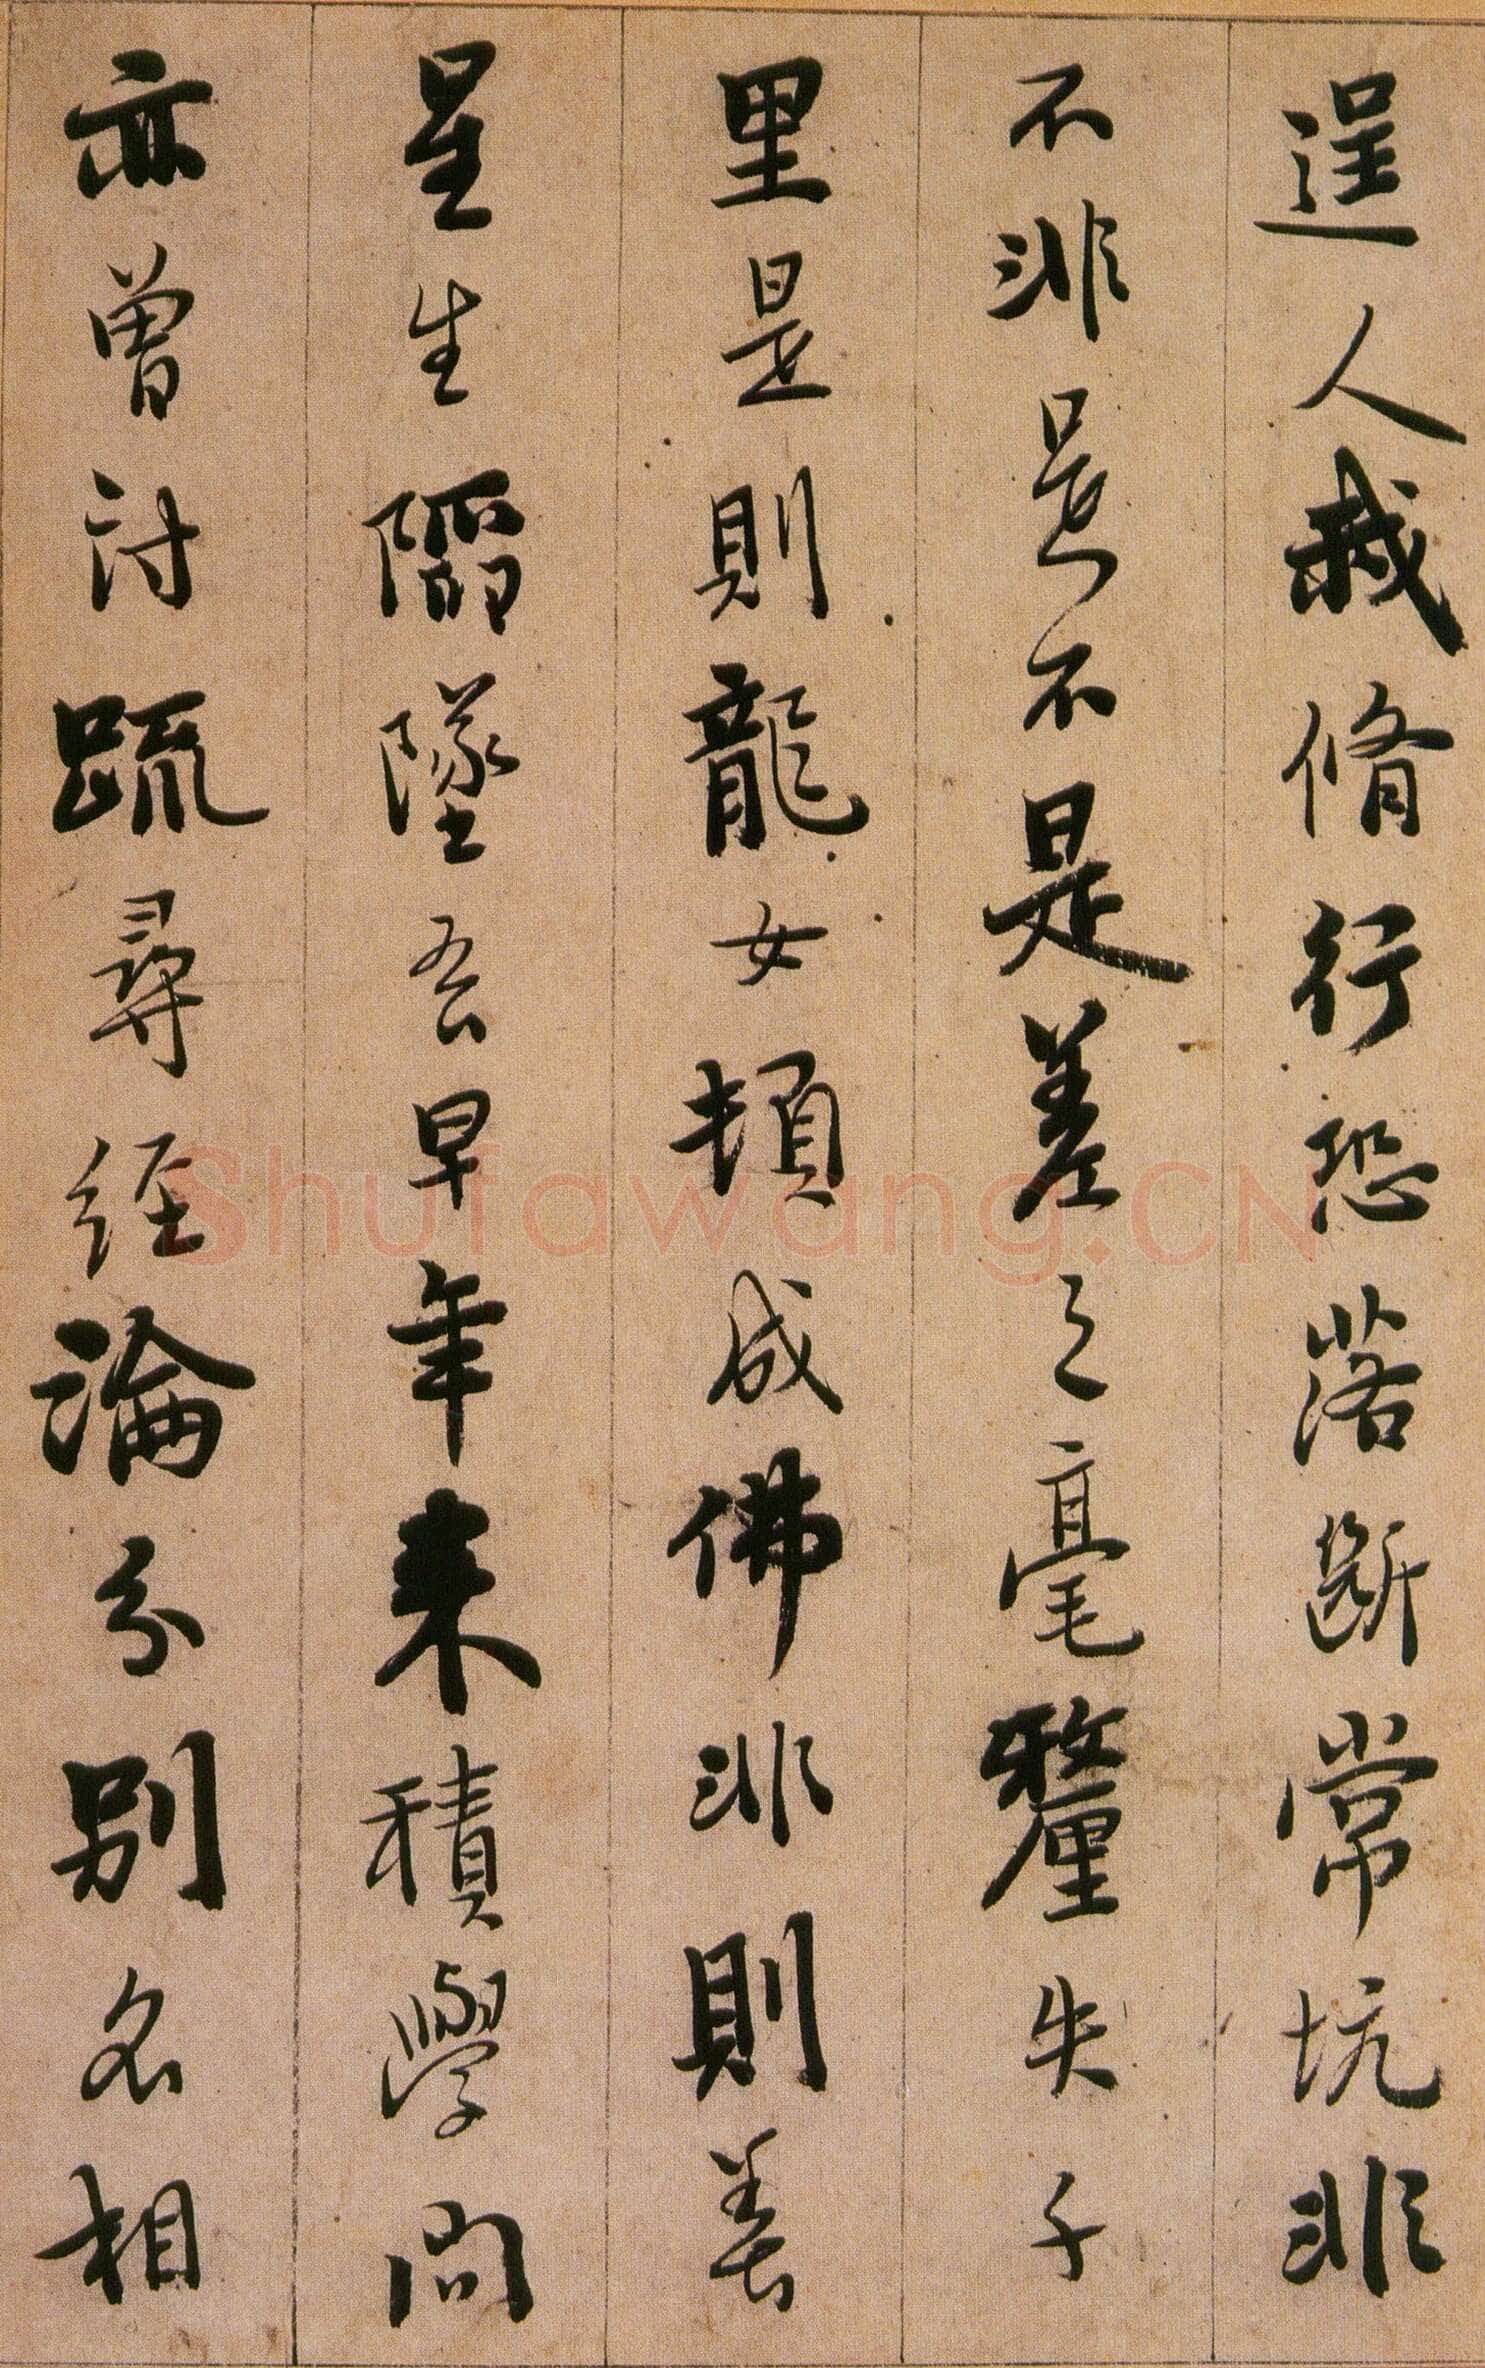 逞人我脩行恐落斷常坑非
不非是不是差之毫釐失千
里是則龍女頓成佛非則善
星生陷墜吾早年来積學問
亦曾討疏尋經論分別名相
Shufawang.CN